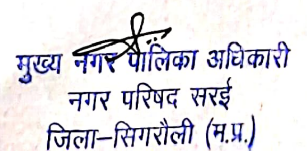 मुख्य नगर पालिका अधिकारी
नगर परिषद सरई
जिला-सिगरौली (म.प्र.)